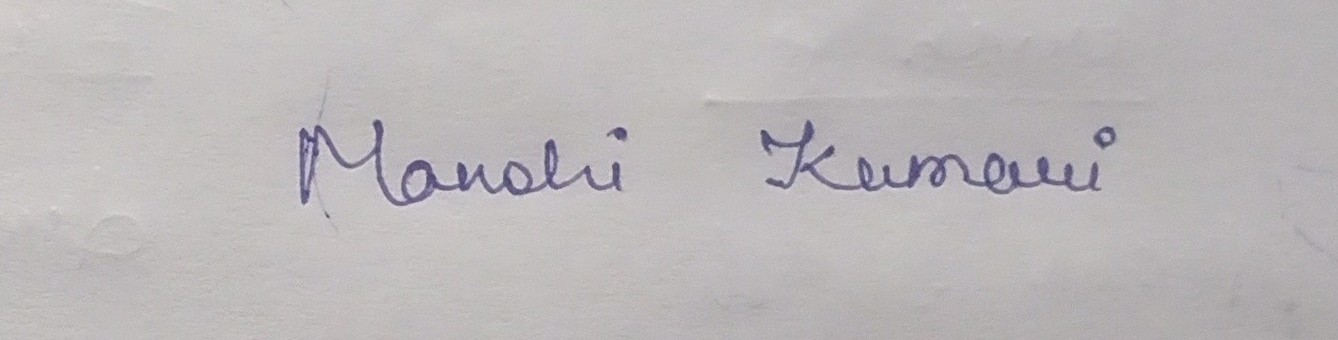 Manohi Kumari